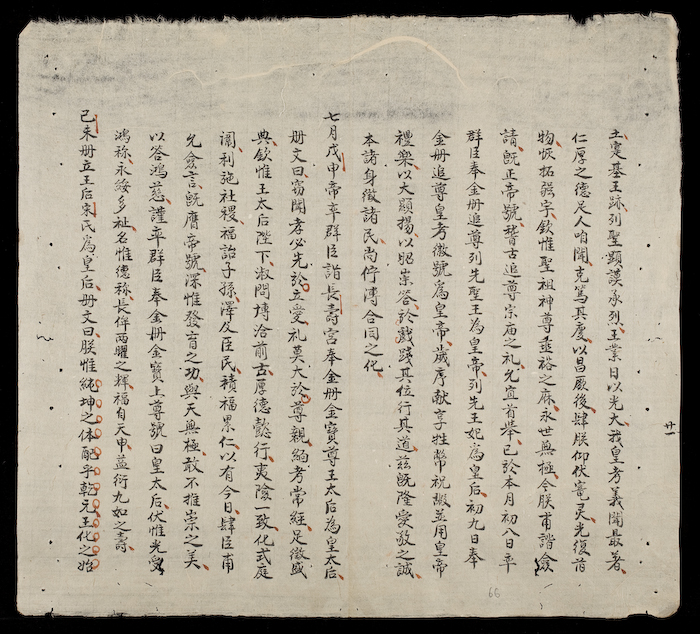 土寔基王跡列聖顯謨承烈王業日以光大我皇考義聞最著
仁厚之德足人咱聞克篤其慶以昌厥後肆朕仰伏寵灵光復旧
物恢拓疆宇欽惟聖祖神尊垂裕之庥永世無極今朕甫諧僉
請既正帝號稽古追尊宗庙之礼允宜首舉已於本月初八日率
群臣奉金册追尊列先聖王為皇帝列先王妃為皇后初九日奉
金册追尊皇考徽號爲皇帝歲序献享牲幣祝嘏並用皇帝
禮樂以大顯揚以昭崇答於戲踐其位行其道茲既隆愛敬之誠
本諸身徵諸民尚佇溥合同之化
七月戊申帝率群臣詣長壽宮奉金册金寶尊王太后為皇太后
册文曰窃聞孝必先於立愛礼莫大於尊親緬考常經足徵盛
典欽惟王太后陛下淑問博洽前古厚德懿行夷險一致化式庭
闈利施社稷福詒子孫澤及臣民積福累仁以有今日肆臣甫
允僉言既膺帝號深惟發育之功與天無極敢不推崇之美
以答鴻慈謹率群臣奉金册金寶上尊號曰皇太后伏惟光受
鴻称永綏多祉名惟德称長侔兩曜之輝福自天申益衍九如之壽
己未册立王后宋氏為皇后册文曰朕惟純坤之体配乎乾元王化之始
廿一
66